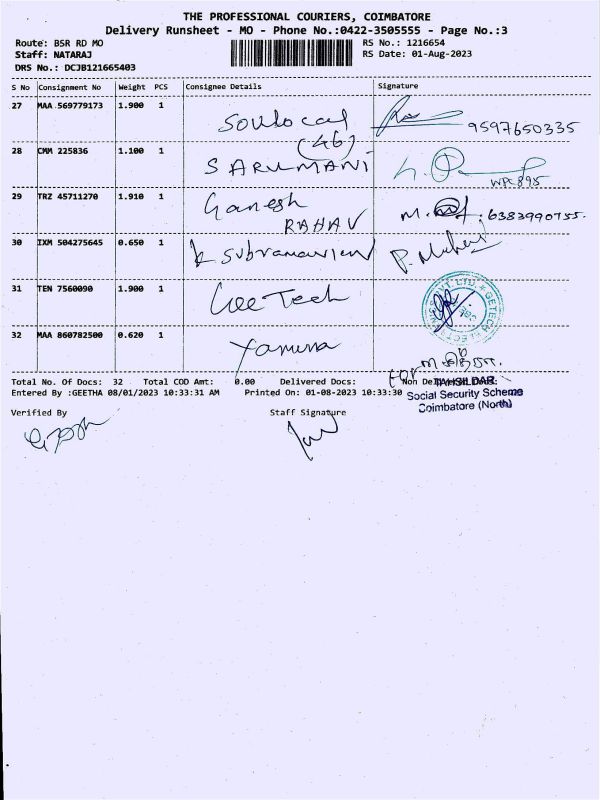 THE PROFESSIONAL COURIERS, COIMBATORE
Delivery Runsheet - MO - Phone No.:0422-3505555 - Page No.:3
Route: BSR RD MO RS No.: 1216654
Staff: NATARAJ RS Date: 01-Aug-2023
DRS No.: DCJB121665403
S No Consignment No Weight PCS Consignee Details Signature
27 MAA 569779173 1.900 1 Soulocal 9597650335
(46)
28 CMM 225836 1.100 1 SARUMANI WPC895
29 TRZ 45711270 1.910 1 Ganesh
RAHAV M. 6383990755.
30 IXM 504275645 0.650 1 K Subramaniam P.
31 TEN 7560090 1.900 1 Gee Tech
32 MAA 860782500 0.620 1 Yamuna
for
Total No. Of Docs: 32 Total COD Amt: 0.00 Delivered Docs: Non TAHSILDAR
Entered By :GEETHA 08/01/2023 10:33:31 AM Printed On: 01-08-2023 10:33:30 Social Security Scheme
Coimbatore (North)
Verified By Staff Signature